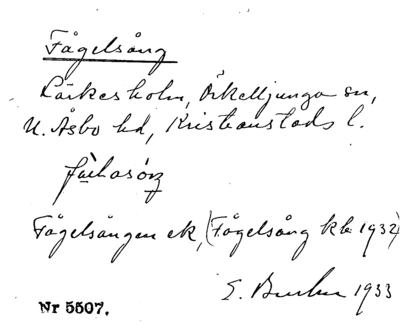 Fågelsång
Lärkesholm, Örkelljunga sn,
N. Åsbo hd, Kristianstads l.
Fågelsången ek, (Fågelsång kb 1932)
E. 1933
Nr 5507.